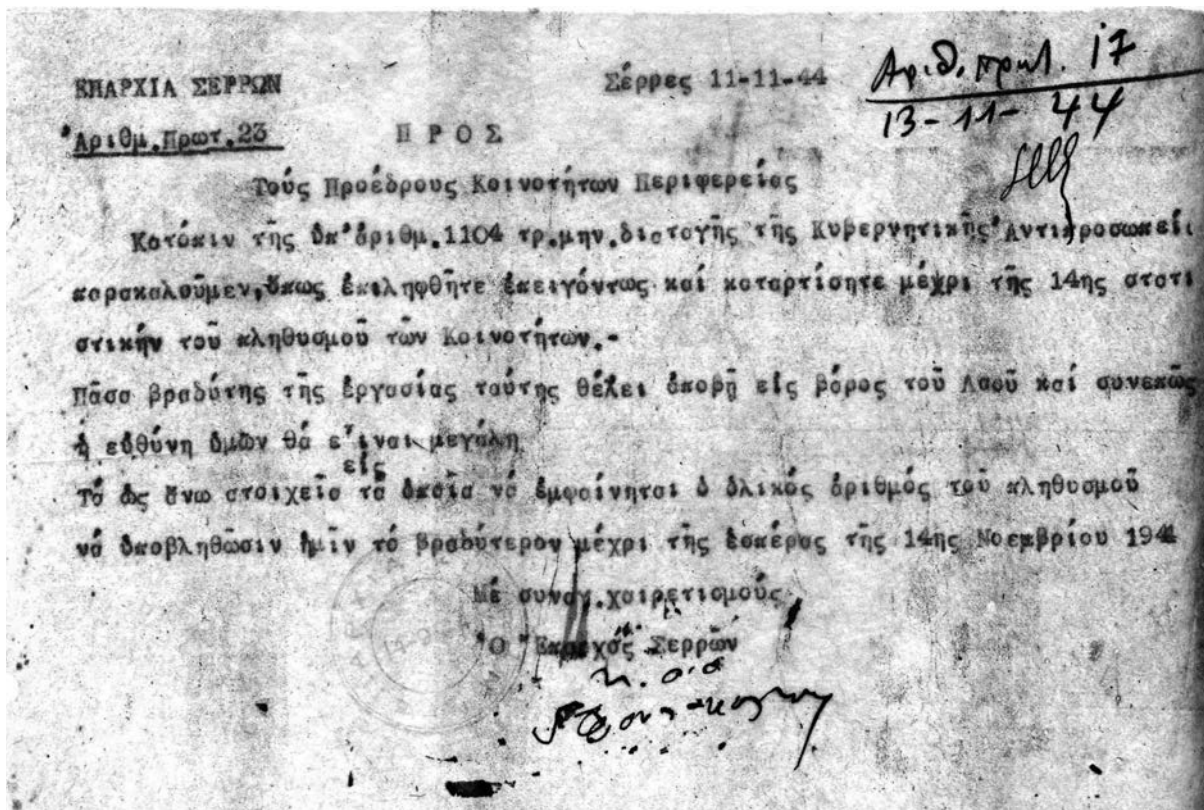 ΕΠΑΡΧΙΑ ΣΕΡΡΩΝ
Σέρρες 11-11-44
Αριθ. πρωτ. 17
13-11-44
Ἀριθμ.Πρωτ.23
Π Ρ Ο Σ
Τούς Προέδρους Κοινοτήτων Περιφερείας
Κατόπιν τῆς ὑπ'ἀριθμ.1104 τρ.μην.διαταγῆς τῆς Κυβερνητικῆς Ἀντιπροσωπεί
παρακαλοῦμεν,ὅπως ἐπιληφθῆτε ἐπειγόντως καί καταρτίσητε μέχρι τῆς 14ης στατι
στικήν τοῦ πληθυσμοῦ τῶν Κοινοτήτων.-
Πᾶσα βραδύτης τῆς ἐργασίας ταύτης θέλει ἀποβῆ εἰς βάρος τοῦ Λαοῦ καί συνεπῶς
ἡ εὐθύνη ὑμῶν θά ε'ἶναι μεγάλη
εἰς
Τά ὡς ἄνω στοιχεῖα τά ὁποῖα νά ἐμφαίνηται ὁ ὁλικός ἀριθμός τοῦ πληθυσμοῦ
νά ὑποβληθῶσιν ἡμῖν τό βραδύτερον μέχρι τῆς ἑσπέρας τῆς 14ης Νοεμβρίου 194
Μέ συναγ.χαιρετισμούς
Ὁ Ἔπαρχός Σερρῶν